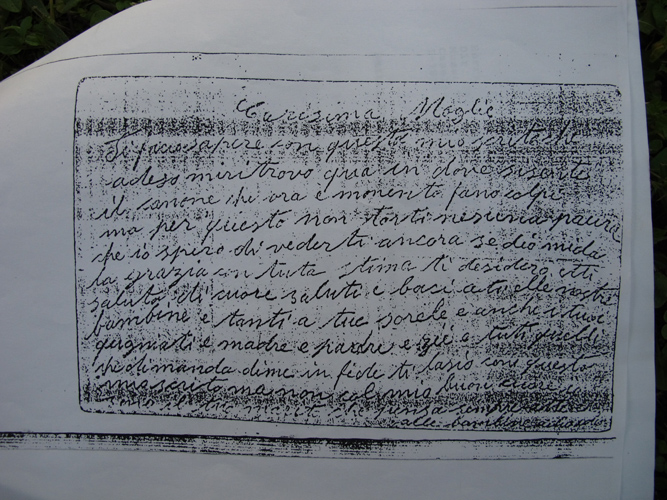 Carisima Moglie
Ti facio sapere con questo mio scrito che
adeso mi ritrovo qua in dove si sente
il canone che ora e momento fano colpi
ma per questo non storti nesuna paura
che io spero di vederti ancora se dio mi da
la grazia con tuta stima ti desidero e ti
saluto di cuore saluti e baci a ti e alle nostre
bambine e tanti a tue sorele e anche i tuoi
cugniati e madre e padre e a tutti queldi
che dimanda dime in fide ti lasio con questo
mio scrito ma non col mio buon cuore
tuo marit che pensa sempre
alle bambine